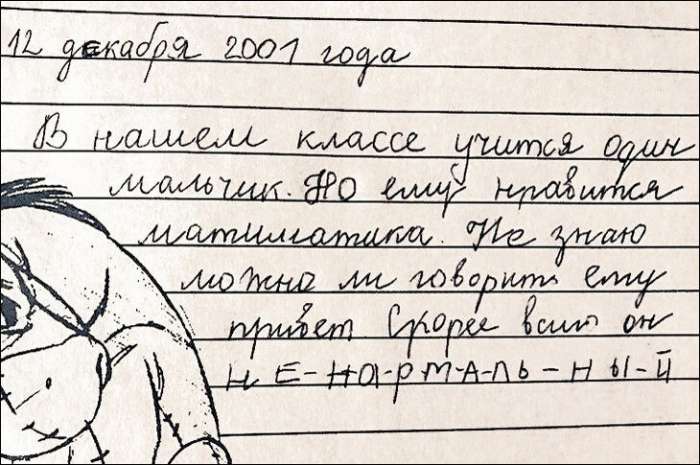 12 декабря 2001 года
В нашем классе учится один
мальчик. Но ему нравится
матиматика. Не знаю
можно ли говорить ему
привет Скорее всиго он
н Е-на-р м-а-ль-н ы-й